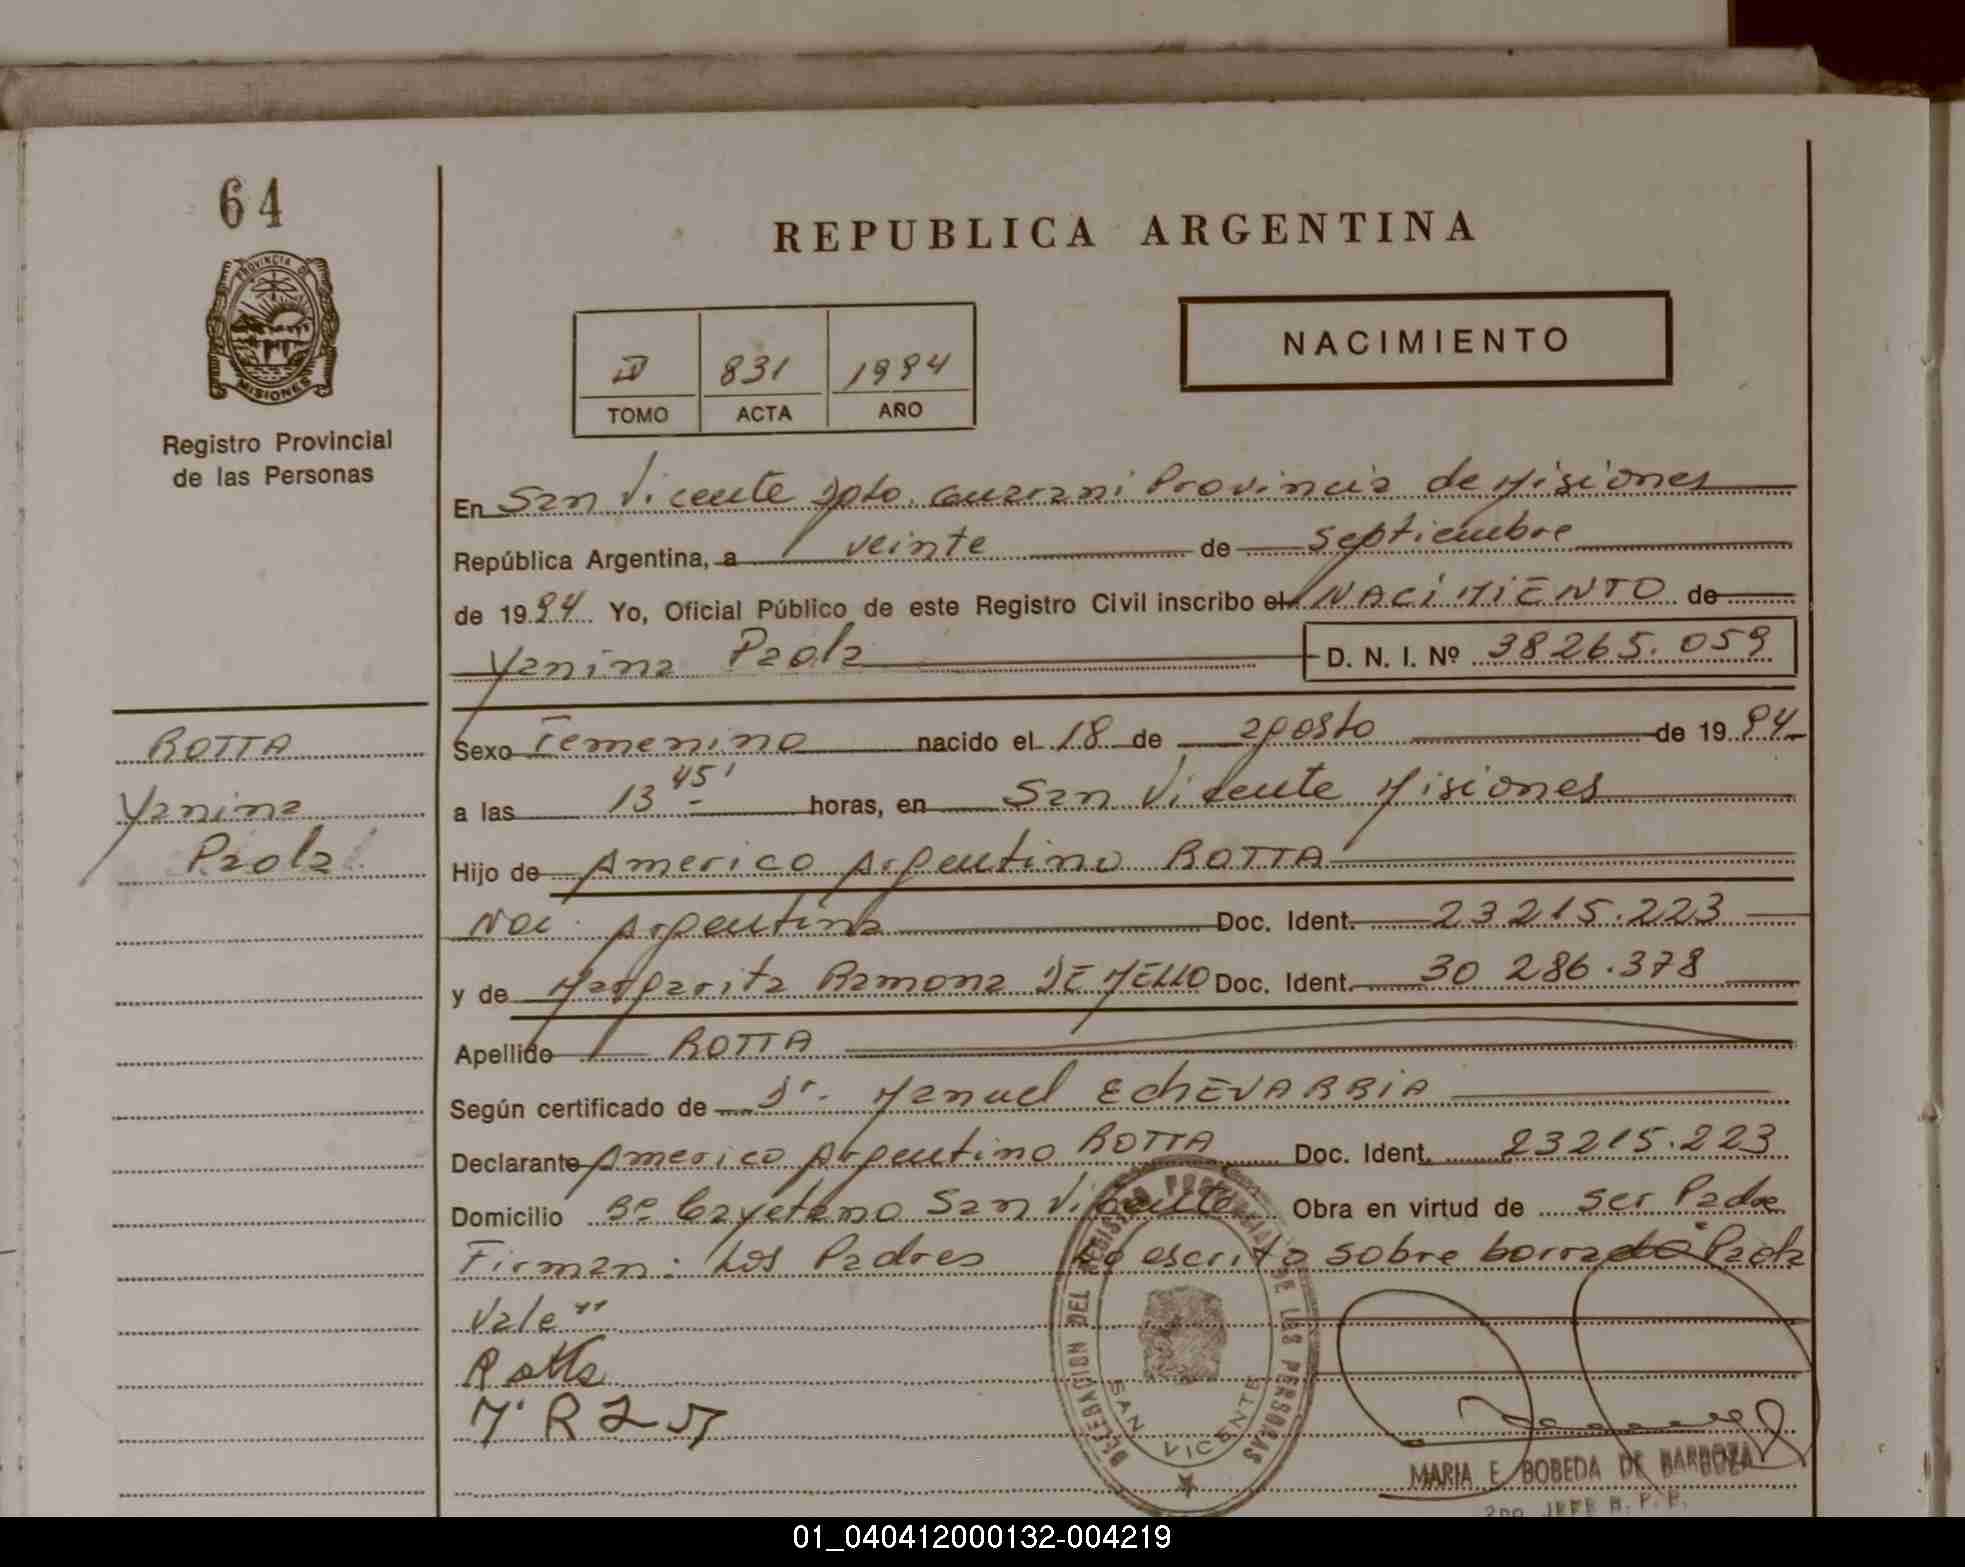 64
PROVINCIA DE
MISIONES
Registro Provincial
de las Personas
REPUBLICA ARGENTINA
NACIMIENTO
831 1994
TOMO ACTA AÑO
En San Vicente Dpto. Guarani Provincia de Misiones
República Argentina, a veinte de septiembre
de 1994 Yo, Oficial Público de este Registro Civil inscribo el NACIMIENTO de
Yanina Paola D. N. I. Nº 38265.059
ROTTA
Yanina
Paola
Sexo Femenino nacido el 18 de agosto de 1994
a las 13 45' horas, en San Vicente Misiones
Hijo de Americo Argentino ROTTA
Nac. Argentina Doc. Ident. 23215.223
y de Margarita Ramona DE MELLO Doc. Ident. 30 286.378
Apellido ROTTA
Según certificado de Dr. Manuel EChEVARRIA
Declarante Americo Argentino ROTTA Doc. Ident. 23215.223
Domicilio Bº Cayetano San Vicente Obra en virtud de ser Padre
Firman: Los Padres Lo escrito sobre borrado "Paola
Vale"
Rotta
M R
DELEGACION DEL REGISTRO PROVINCIAL DE LAS PERSONAS
SAN VICENTE
MARIA E. BOBEDA DE BARBOZA
2DO. JEFE R. P. P.
01_040412000132-004219